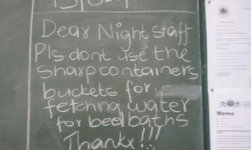 Dear Night staff
Pls dont use the
sharp containers
buckets for
fetching water
for bed baths
Thankx!!!
Memo